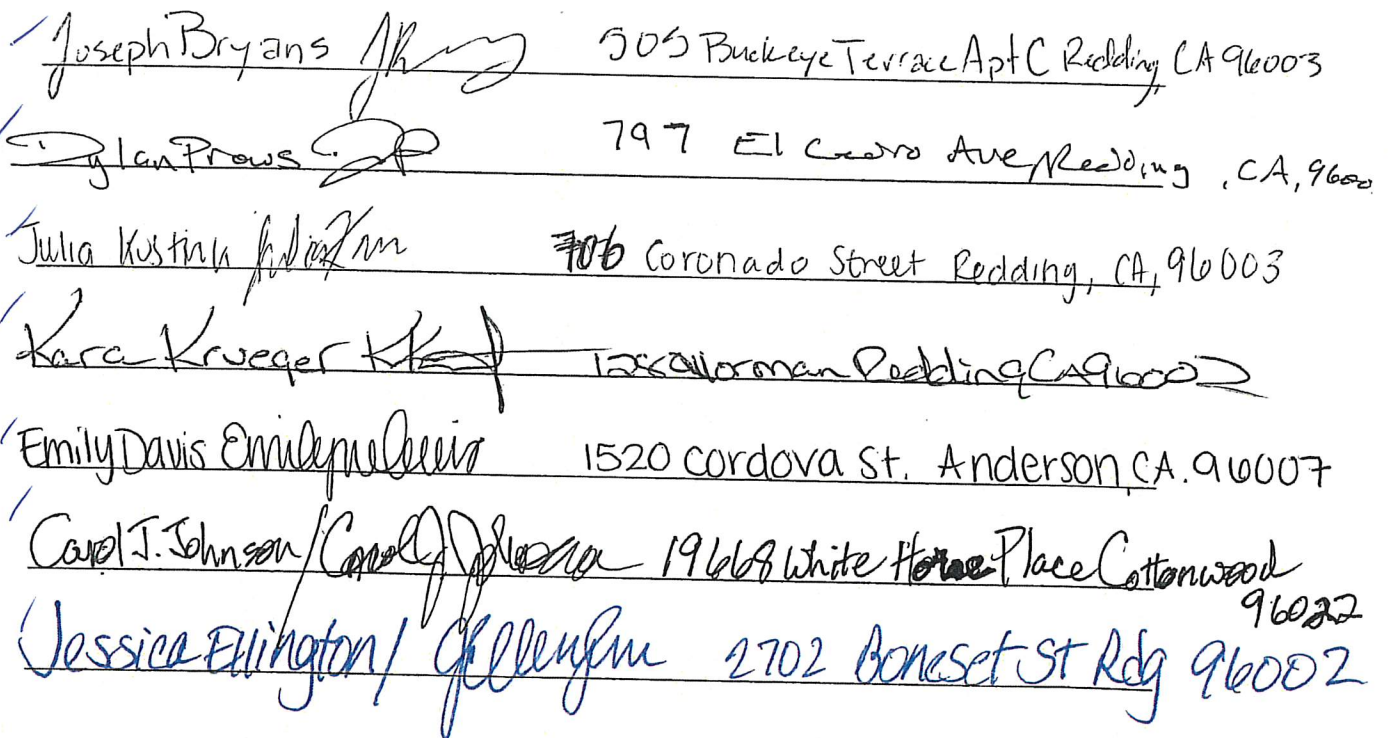 Joseph Bryans 505 Buckeye Terrace Apt C Redding, CA 96003
Dylan Prows 797 El Ave, Redding, CA,
Julia 706 Coronado Street Redding, CA, 96003
Kara Krueger Redding CA 96002
Emily Davis 1520 Cordova St. Anderson, CA. 96007
Carol J. Johnson / Carol J Johnson 19668 White Horse Place Cottonwood
96022
Jessica Ellington / 2702 Boneset St Rdg 96002